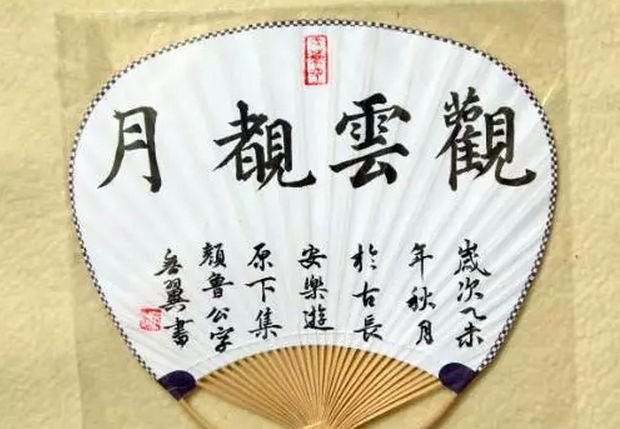 觀雲覩月
歲次乙未
年秋月
於古長
安樂遊
原下集
顏魯公字
翼書